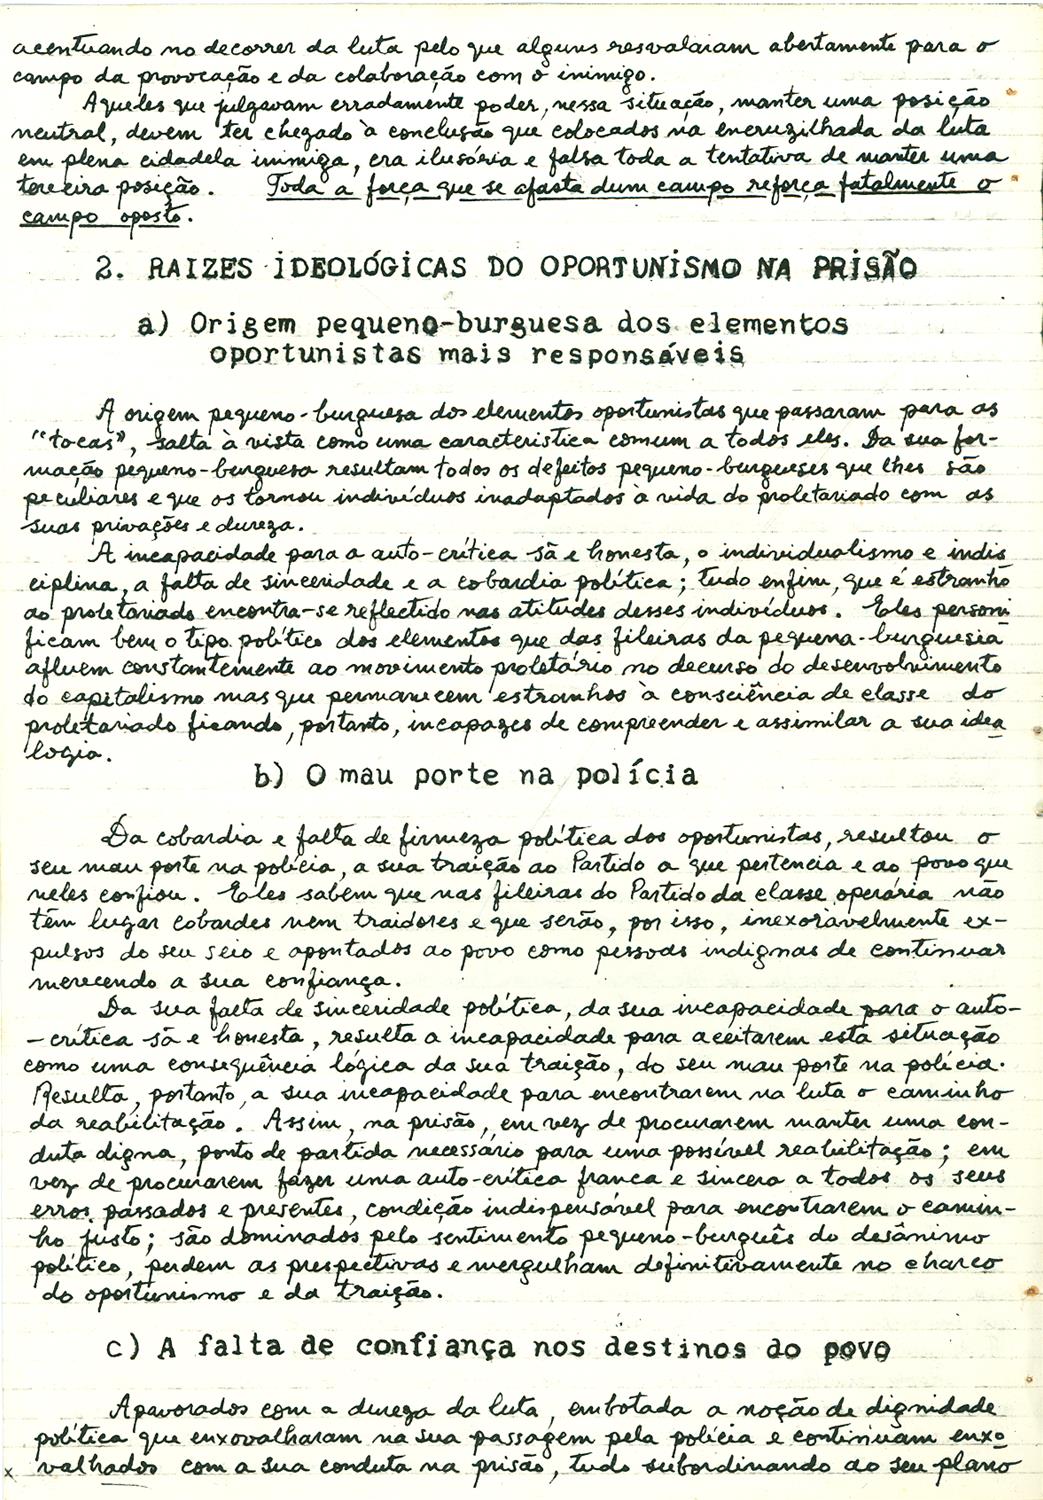 acentuando no decorrer da luta pelo que alguns resvalaram abertamente para o
campo da provocação e da colaboração com o inimigo.
Aqueles que julgavam erradamente poder, nessa situação, manter uma posição
neutral, devem ter chegado à conclusão que colocados na encruzilhada da luta
em plena cidadela inimiga, era ilusória e falsa toda a tentativa de manter uma
terceira posição. Toda a força que se afasta dum campo reforça fatalmente o
campo oposto.
2. RAIZES IDEOLÓGICAS DO OPORTUNISMO NA PRISÃO
a) Origem pequeno-burguesa dos elementos
oportunistas mais responsáveis
A origem pequeno-burguesa dos elementos oportunistas que passaram para as
"tocas", salta à vista como uma caracteristica comum a todos eles. Da sua for-
mação pequeno-burguesa resultam todos os defeitos pequeno-burgueses que lhes são
peculiares e que os tornou indivíduos inadaptados à vida do proletariado com as
suas privações e dureza.
A incapacidade para a auto-crítica sã e honesta, o individualismo e indis
ciplina, a falta de sinceridade e a cobardia política; tudo enfim, que é estranho
ao proletariado encontra-se reflectido nas atitudes desses indivíduos. Eles personi
ficam bem o tipo político dos elementos que das fileiras da pequena-burguesia
afluem constantemente ao movimento proletário no decurso do desenvolvimento
do capitalismo mas que permanecem estranhos à consciência de classe do
proletariado ficando, portanto, incapazes de compreender e assimilar a sua ideo
logia.
b) O mau porte na polícia
Da cobardia e falta de firmeza política dos oportunistas, resultou o
seu mau porte na polícia, a sua traição ao Partido a que pertencia e ao povo que
neles confiou. Eles sabem que nas fileiras do Partido da classe operária não
têm lugar cobardes nem traidores e que serão, por isso, inexoravelmente ex-
pulsos do seu seio e apontados ao povo como pessoas indignas de continuar
merecendo a sua confiança.
Da sua falta de sinceridade política, da sua incapacidade para o auto-
-crítica sã e honesta, resulta a incapacidade para aceitarem esta situação
como uma consequência lógica da sua traição, do seu mau porte na polícia.
Resulta, portanto, a sua incapacidade para encontrarem na luta o caminho
da reabilitação. Assim, na prisão, em vez de procurarem manter uma con-
duta digna, ponto de partida necessário para uma possível reabilitação; em
vez de procurarem fazer uma auto-crítica franca e sincera a todos os seus
erros passados e presentes, condição indispensável para encontrarem o camin-
ho justo; são dominados pelo sentimento pequeno-burguês do desânimo
político, perdem as prespectivas e mergulham definitivamente no charco
do oportunismo e da traição.
c) A falta de confiança nos destinos do povo
Apavorados com a dureza da luta, embotada a noção de dignidade
política que enxovalharam na sua passagem pela polícia e continuam enxo
x valhados com a sua conduta na prisão, tudo subordinando ao seu plano